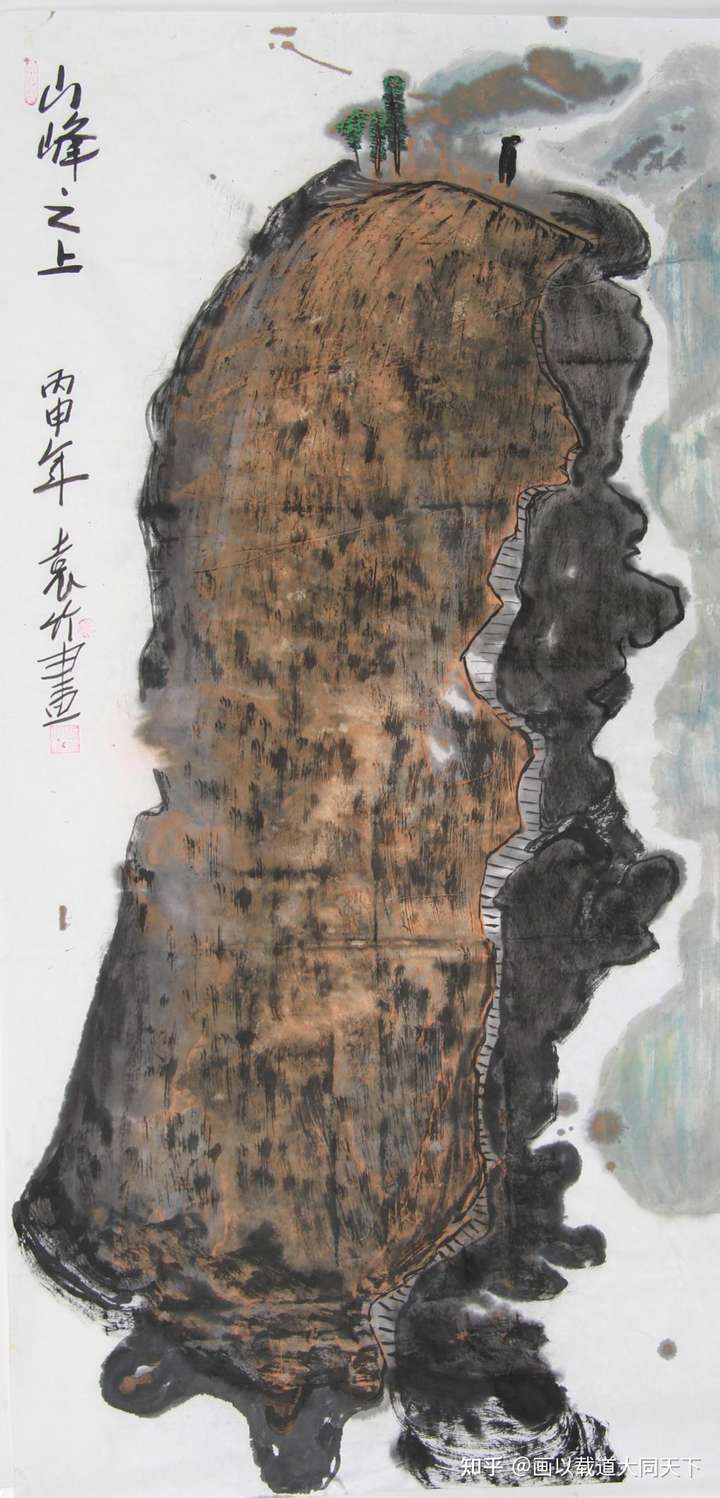 山峰之上
丙申年
袁竹画
知乎 @画以载道大同天下